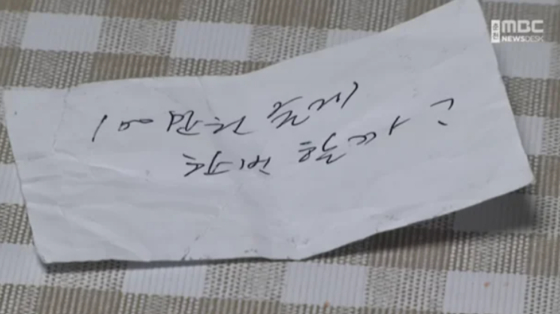 MBC
NEWSDESK
100만원 줄게
한번 할까?